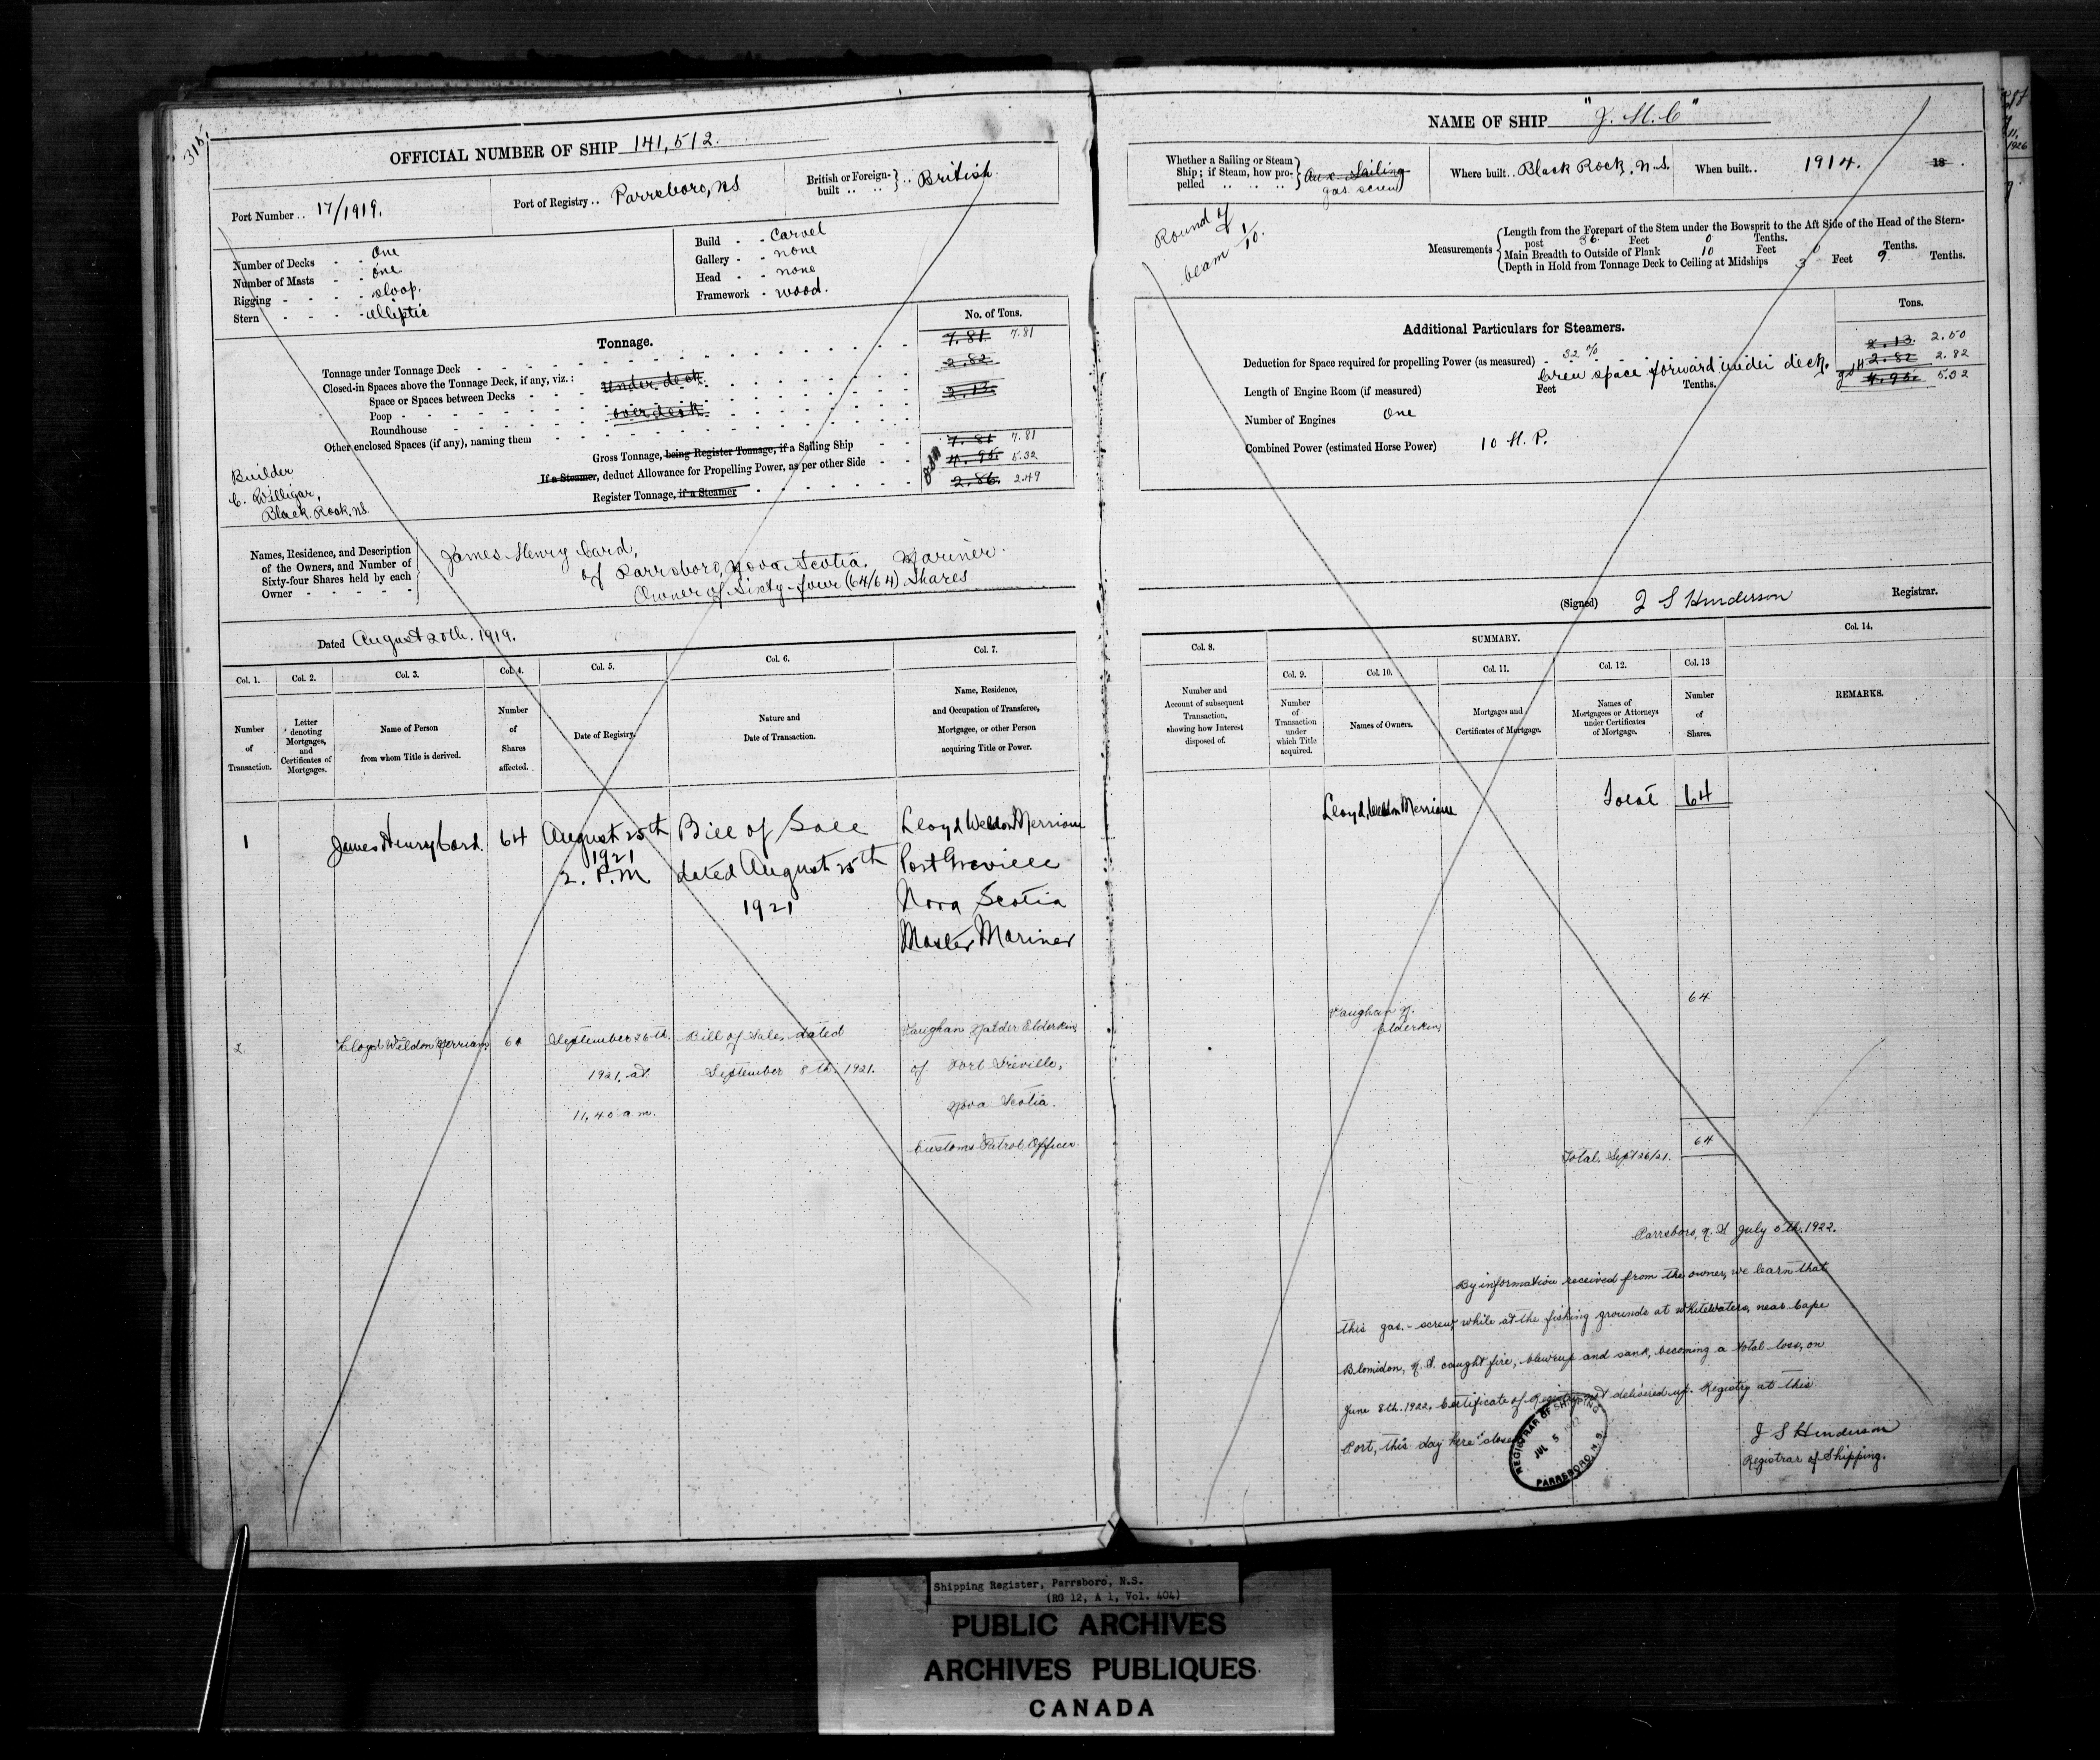 315.
OFFICIAL NUMBER OF SHIP 141,512.
Port Number .. 17/1919.
Port of Registry .. Parrsboro, N.S.
British or Foreign-built .. British.
Number of Decks - - One
Number of Masts - - One
Rigging - - - sloop.
Stern - - - elliptic
Build - - Carvel
Gallery - - none
Head - - none
Framework - wood.
Tonnage.
No. of Tons.
Tonnage under Tonnage Deck 7.81 7.81
Closed-in Spaces above the Tonnage Deck, if any, viz.: 2.82
Space or Spaces between Decks Under deck 2.13
Poop
Roundhouse over deck
Other enclosed Spaces (if any), naming them
Gross Tonnage, being Register Tonnage, if a Sailing Ship 7.81 7.81
If a Steamer, deduct Allowance for Propelling Power, as per other Side 4.95 5.32
Register Tonnage, if a Steamer 2.86 2.49
Builder
C. Willigar,
Black Rock, N.S.
Names, Residence, and Description of the Owners, and Number of Sixty-four Shares held by each Owner
James Henry Card,
of Parrsboro, Nova Scotia. Mariner.
Owner of Sixty-four (64/64) Shares
Dated August 20th. 1919.
Col. 1. Col. 2. Col. 3. Col. 4. Col. 5. Col. 6. Col. 7.
Number of Transaction.
Letter denoting Mortgages, and Certificates of Mortgages.
Name of Person from whom Title is derived.
Number of Shares affected.
Date of Registry.
Nature and Date of Transaction.
Name, Residence, and Occupation of Transferee, Mortgagee, or other Person acquiring Title or Power.
1 James Henry Card. 64 August 25th Bill of Sale Lloyd Weldon Merriam
1921 dated August 25th Port Greville
2. P.M 1921 Nova Scotia
Master Mariner
2. Lloyd Weldon Merriam 64 September 26th. Bill of Sale, dated Vaughan Natder Elderkin,
1921, at September 8th. 1921. of Port Greville,
11,40 a m. Nova Scotia.
Customs Patrol Officer.
NAME OF SHIP "J. H. C"
Whether a Sailing or Steam Ship; if Steam, how propelled Aux. Sailing
gas screw
Where built .. Black Rock, N.S.
When built .. 1914. 18 .
Round of
beam 1/10.
Measurements
Length from the Forepart of the Stem under the Bowsprit to the Aft Side of the Head of the Stern-
post 36. Feet 0 Tenths.
Main Breadth to Outside of Plank 10 Feet 0 Tenths.
Depth in Hold from Tonnage Deck to Ceiling at Midships 3 Feet 9 Tenths.
Additional Particulars for Steamers.
Tons.
Deduction for Space required for propelling Power (as measured) 32 % 2.13 2.50
Crew space forward under deck. 2.82 2.82
Length of Engine Room (if measured) Feet Tenths. 4.95 5.32
Number of Engines One
Combined Power (estimated Horse Power) 10 H. P.
(Signed) J S Henderson Registrar.
Col. 8. SUMMARY. Col. 14.
Col. 9. Col. 10. Col. 11. Col. 12. Col. 13
Number and Account of subsequent Transaction, showing how Interest disposed of.
Number of Transaction under which Title acquired.
Names of Owners.
Mortgages and Certificates of Mortgage.
Names of Mortgagees or Attorneys under Certificates of Mortgage.
Number of Shares.
REMARKS.
Lloyd, Weldon Merriam Total 64
Vaughan N. Elderkin, 64
Total, Sept 26/21. 64
Parrsboro, N. S. July 5th. 1922.
By information received from the owner, we learn that
this gas.-screw, while at the fishing grounds at Whitewaters, near Cape
Blomidon, N. S. caught fire, blew up and sank, becoming a total loss, on
June 8th. 1922. Certificate of Registry not delivered up. Registry at this
Port, this day here closed
J S Henderson
Registrar of Shipping.
REGISTRAR OF SHIPPING
JUL 5 1922
PARRSBORO, N.S.
Shipping Register, Parrsboro, N.S.
(RG 12, A 1, Vol. 404)
PUBLIC ARCHIVES
ARCHIVES PUBLIQUES
CANADA